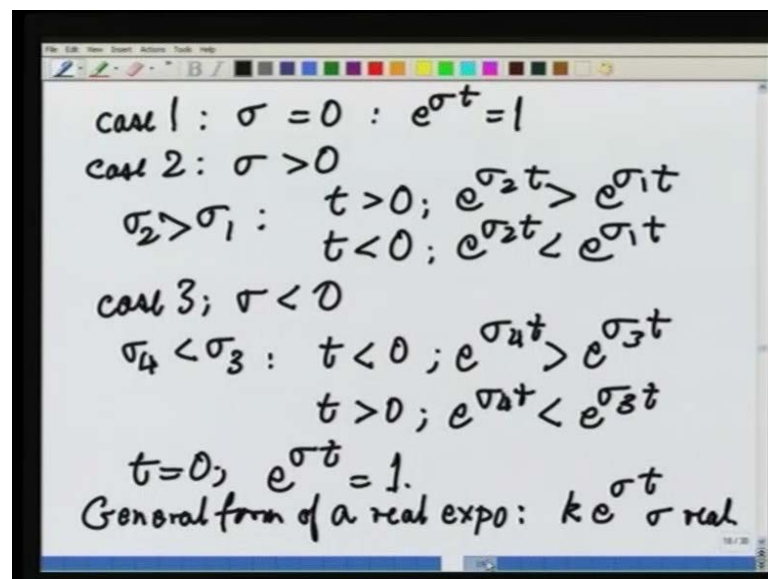 File Edit View Insert Actions Tools Help
B I
case 1 : σ = 0 : e^{σt} = 1
case 2 : σ > 0
σ₂ > σ₁ : t > 0 ; e^{σ₂t} > e^{σ₁t}
t < 0 ; e^{σ₂t} < e^{σ₁t}
case 3 ; σ < 0
σ₄ < σ₃ : t < 0 ; e^{σ₄t} > e^{σ₃t}
t > 0 ; e^{σ₄t} < e^{σ₃t}
t = 0 ; e^{σt} = 1.
General form of a real expo : k e^{σt} σ real